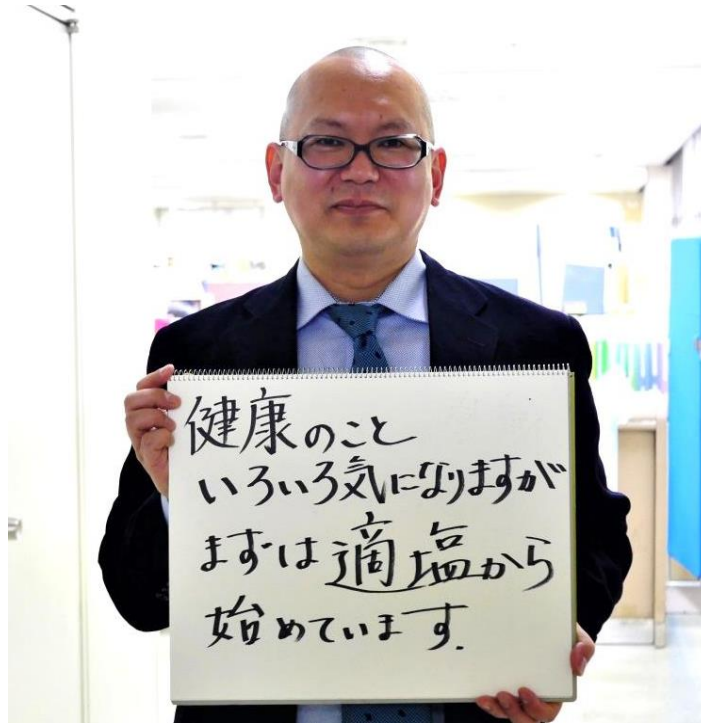 健康のこと
いろいろ気になりますが
まずは適塩から
始めています.